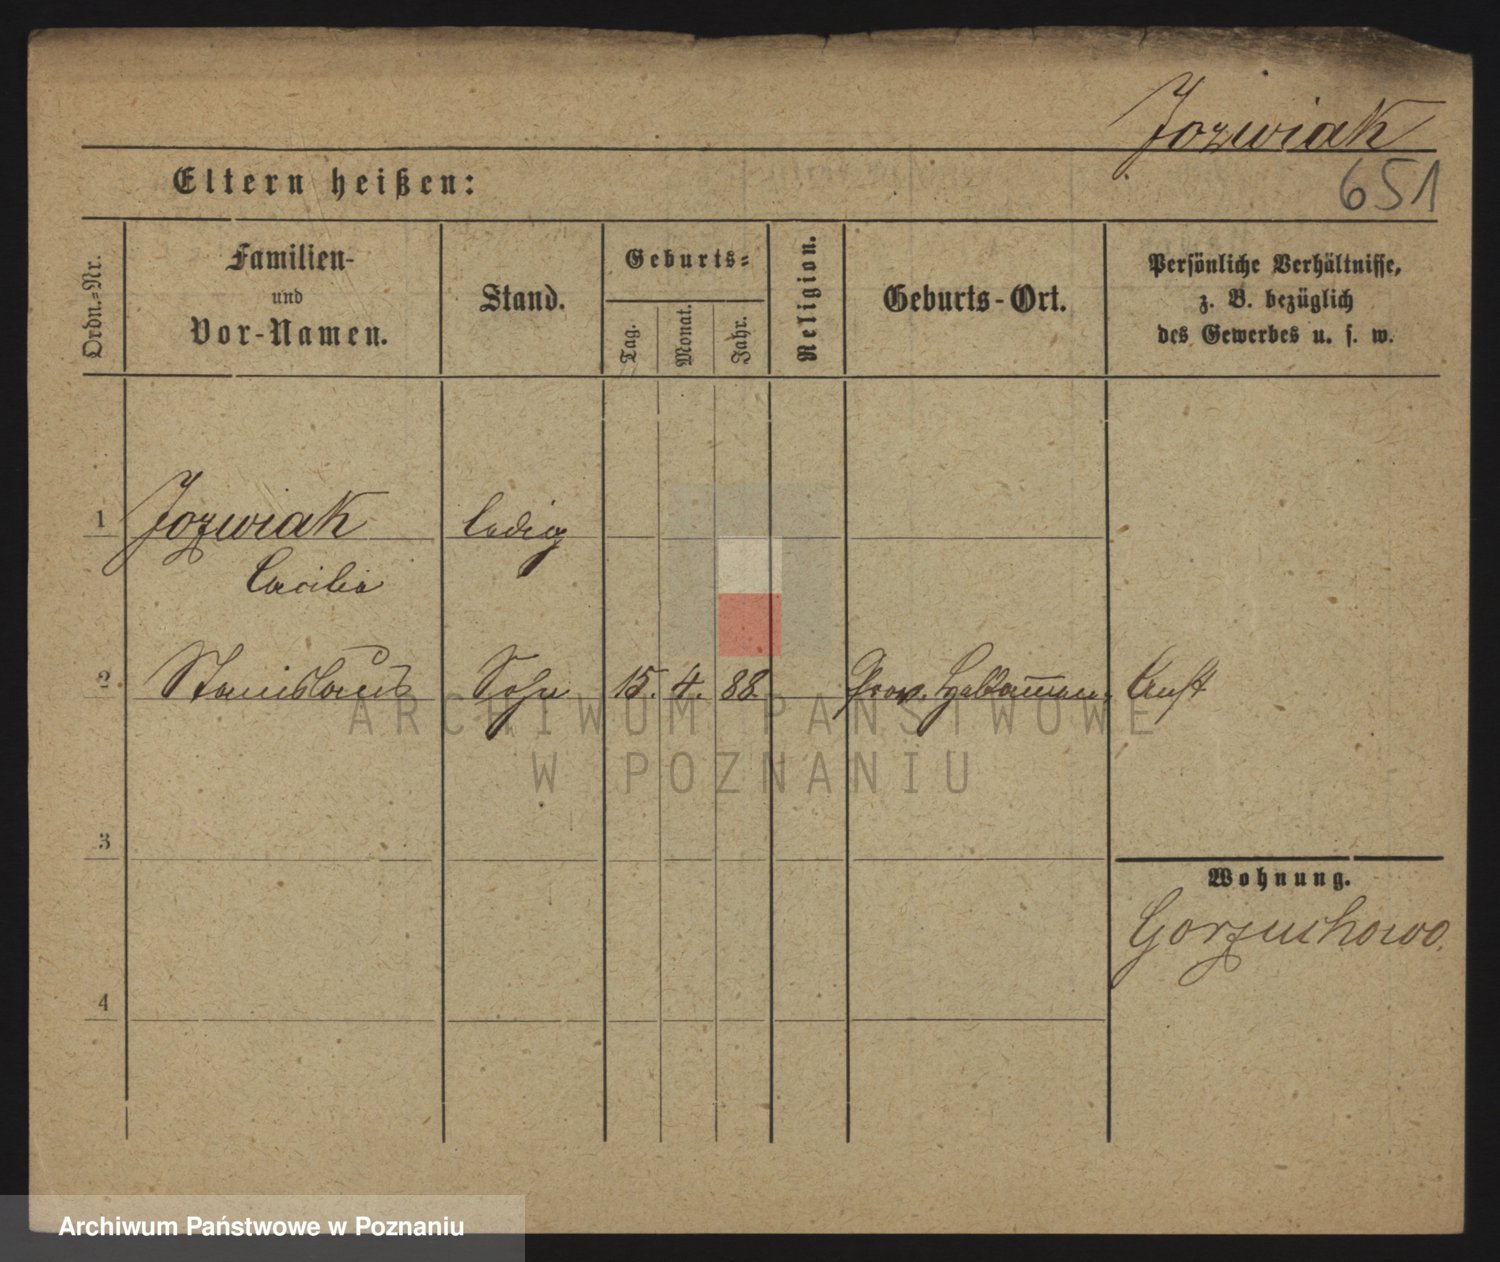 Jozwiak
651
Eltern heißen:
Ordn.-Nr.
Familien-
und
Vor-Namen.
Stand.
Geburts-
Tag.
Monat.
Jahr.
Religion.
Geburts-Ort.
Persönliche Verhältnisse,
z. B. bezüglich
des Gewerbes u. s. w.
1 Jozwiak ledig
Cacilia
2 Stanislaus Sohn 15. 4. 88. Prov.
ARCHIWUM PAŃSTWOWE
W POZNANIU
3
Wohnung.
Gorzuchowo.
4
Archiwum Państwowe w Poznaniu